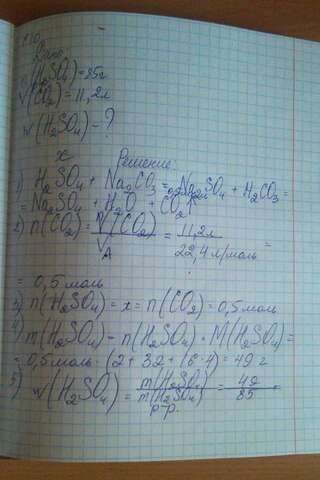 Дано:
m(H₂SO₄) = 85г
V(CO₂) = 11,2л
w(H₂SO₄) - ?
x Решение:
1) H₂SO₄ + Na₂CO₃ = Na₂SO₄ + H₂CO₃ =
= Na₂SO₄ + H₂O + CO₂↑
2) n(CO₂) = V(CO₂) / V = 11,2л / 22,4 л/моль =
= 0,5 моль
3) n(H₂SO₄) = x = n(CO₂) = 0,5 моль
4) m(H₂SO₄) = n(H₂SO₄) · M(H₂SO₄) =
= 0,5 моль · (2 + 32 + 16·4) = 49 г
5) w(H₂SO₄) = m(H₂SO₄) / m(H₂SO₄) р-р. = 49 / 85 =